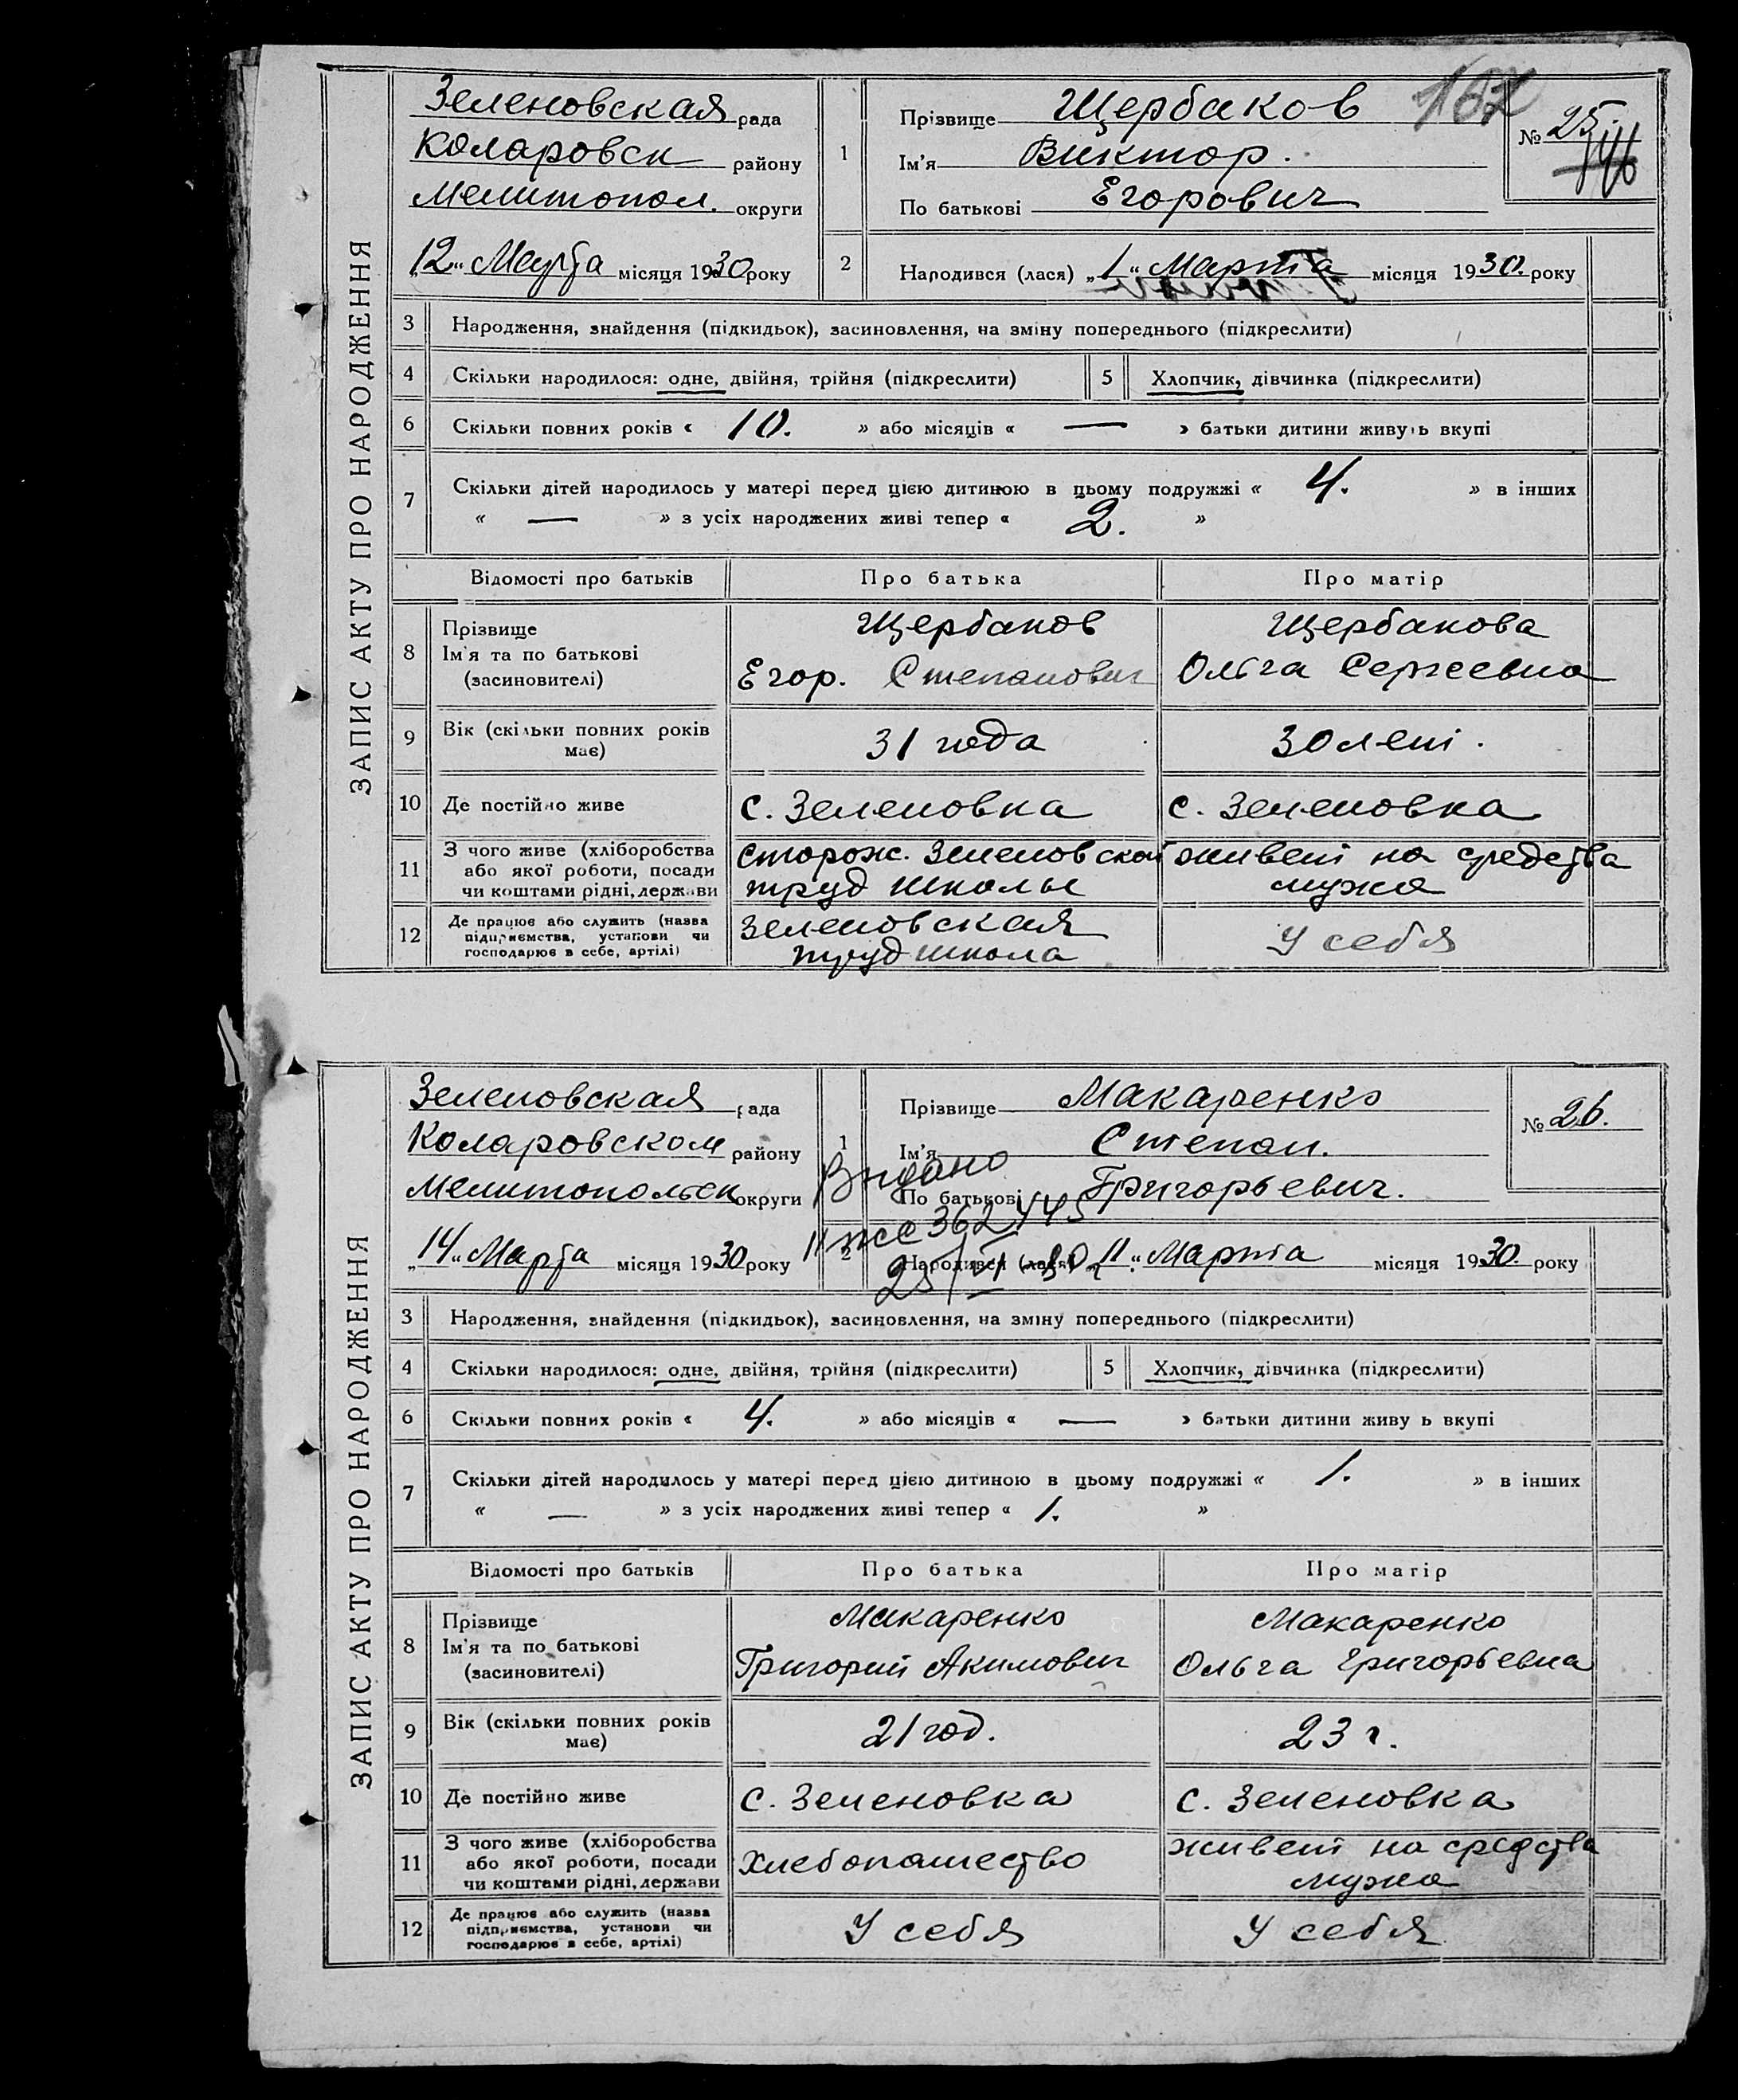 ЗАПИС АКТУ ПРО НАРОДЖЕННЯ
Зеленовская рада
Коларовск району
Мелитопол. округи
„12“ Марта місяця 1930 року
1 Прізвище Щербаков
Ім'я Виктор.
По батькові Егорович
167
№ 25.
2 Народився (лася) „1“ Марта місяця 1930. року
3 Народження, знайдення (підкидьок), засиновлення, на зміну попереднього (підкреслити)
4 Скільки народилося: одне, двійня, трійня (підкреслити) 5 Хлопчик, дівчинка (підкреслити)
6 Скільки повних років « 10. » або місяців « — » батьки дитини живуть вкупі
7 Скільки дітей народилось у матері перед цією дитиною в цьому подружжі « 4. » в інших
« — » з усіх народжених живі тепер « 2. »
Відомості про батьків Про батька Про матір
8 Прізвище Щербаков Щербакова
Ім'я та по батькові Егор. Степанович Ольга Сергеевна
(засиновителі)
9 Вік (скільки повних років має) 31 года 30 лет.
10 Де постійно живе с. Зеленовка с. Зеленовка
11 З чого живе (хліборобства Сторож. Зеленовской живет на средства
або якої роботи, посади труд школы мужа
чи коштами рідні, держави
12 Де працює або служить (назва Зеленовская У себя
підприємства, установи чи труд школа
господарює в себе, артілі)
ЗАПИС АКТУ ПРО НАРОДЖЕННЯ
Зеленовская рада
Коларовском району
Мелитопольск округи
„14“ Марта місяця 1930 року
1 Прізвище Макаренко
Ім'я Степан.
По батькові Григорьевич.
№ 26.
Видано
362445
2 Народився (лася) „11“ Марта місяця 1930. року
3 Народження, знайдення (підкидьок), засиновлення, на зміну попереднього (підкреслити)
4 Скільки народилося: одне, двійня, трійня (підкреслити) 5 Хлопчик, дівчинка (підкреслити)
6 Скільки повних років « 4. » або місяців « — » батьки дитини живу ь вкупі
7 Скільки дітей народилось у матері перед цією дитиною в цьому подружжі « 1. » в інших
« — » з усіх народжених живі тепер « 1. »
Відомості про батьків Про батька Про матір
8 Прізвище Макаренко Макаренко
Ім'я та по батькові Григорий Акимович Ольга Григорьевна
(засиновителі)
9 Вік (скільки повних років має) 21 год. 23 г.
10 Де постійно живе с. Зеленовка с. Зеленовка
11 З чого живе (хліборобства Хлебопашество живет на средства
або якої роботи, посади мужа
чи коштами рідні, держави
12 Де працює або служить (назва У себя У себя
підприємства, установи чи
господарює в себе, артілі)